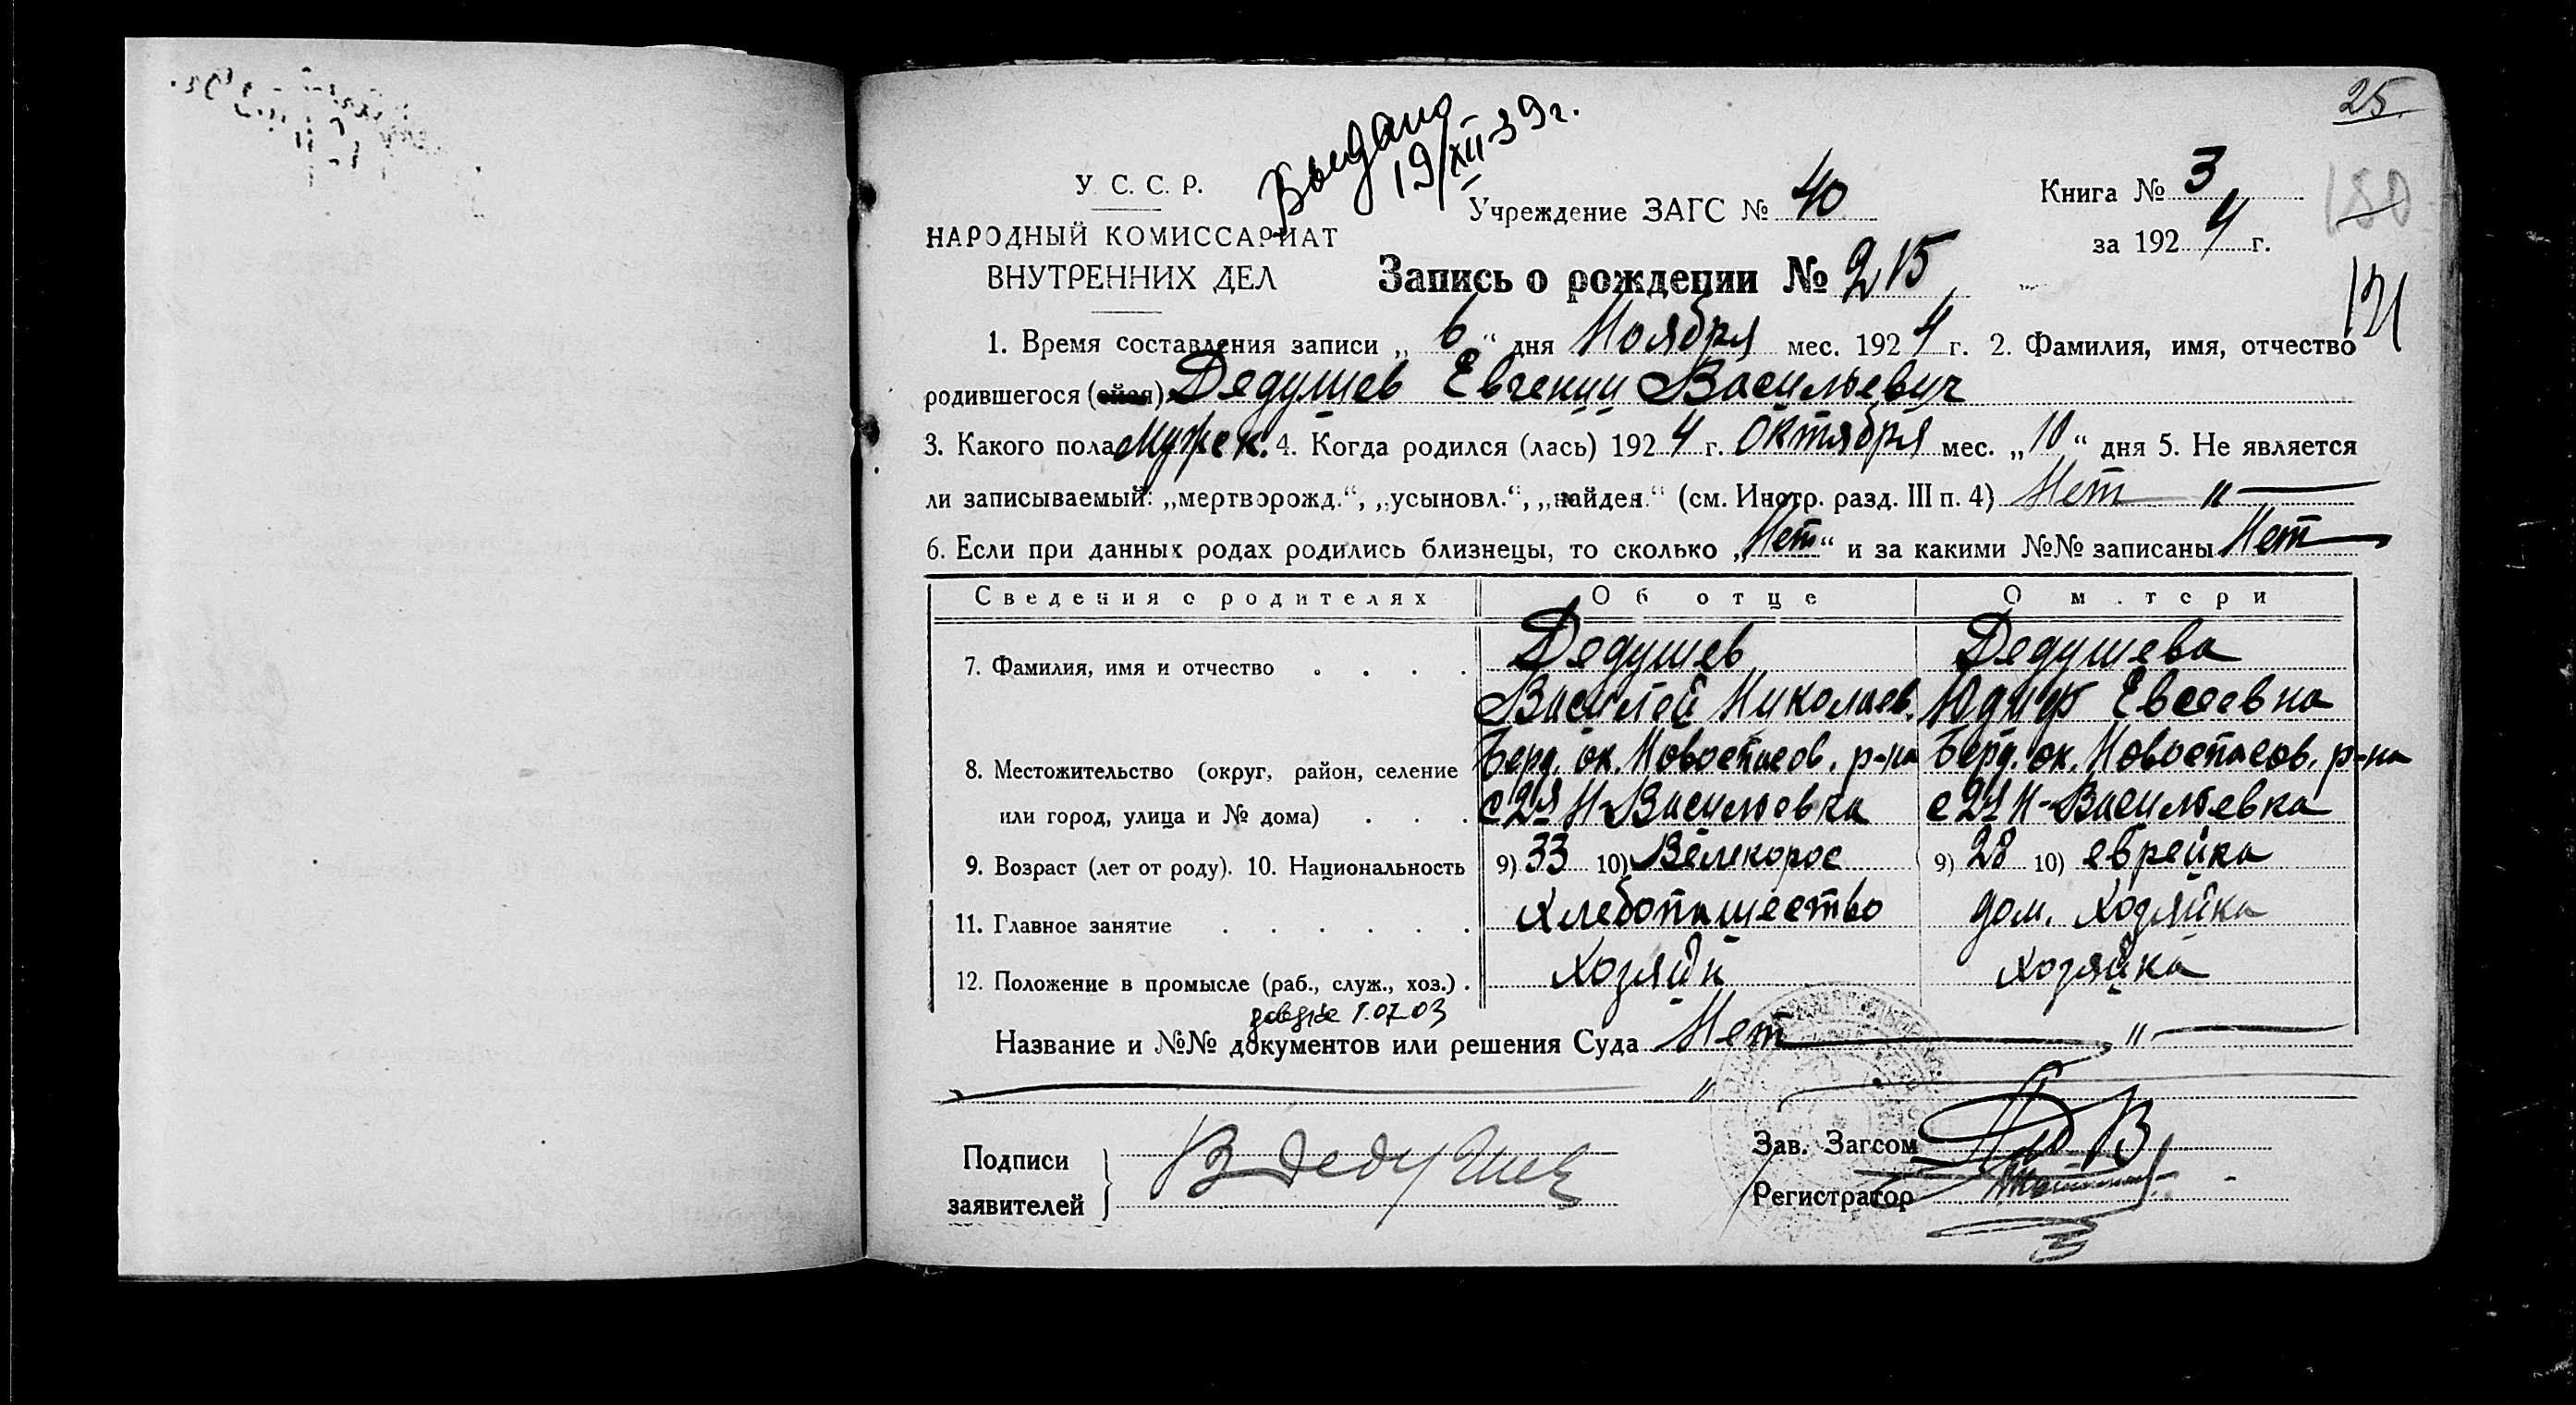 25
Выдано
19/XII-39г.
У. С. С. Р.
НАРОДНЫЙ КОМИССАРИАТ
ВНУТРЕННИХ ДЕЛ
Учреждение ЗАГС № 40
Книга № 3
180
за 1924 г.
Запись о рождении № 215
121
1. Время составления записи „6“ дня Ноября мес. 1924 г. 2. Фамилия, имя, отчество
родившегося (ейся) Дедушев Евгении Васильевич
3. Какого пола Мужск. 4. Когда родился (лась) 1924 г. Октября мес. „10“ дня 5. Не является
ли записываемый: „мертворожд.“, „усыновл.“, „найден.“ (см. Инстр. разд. III п. 4) Нет "
6. Если при данных родах родились близнецы, то сколько „Нет“ и за какими №№ записаны Нет
Сведения о родителях Об отце О м.тери
7. Фамилия, имя и отчество . . . . Дедушев Дедушева
Василей Николаев. Юдиф Евсеевна
8. Местожительство (округ, район, селение Берд. ок. Новоспасов. р-на Берд. ок. Новоспасов. р-на
или город, улица и № дома) . . . с 2я Н-Васильевка с 2я Н-Васильевка
9. Возраст (лет от роду). 10. Национальность 9) 33 10) Велекорос 9) 28 10) еврейка
11. Главное занятие . . . . . . Хлебопашество дом. хозяйка
12. Положение в промысле (раб., служ., хоз.) . Хозяйн хозяйка
1.07.03
Название и №№ документов или решения Суда Нет "
"
Подписи
заявителей
В Дедушев
Зав. Загсом
Регистратор